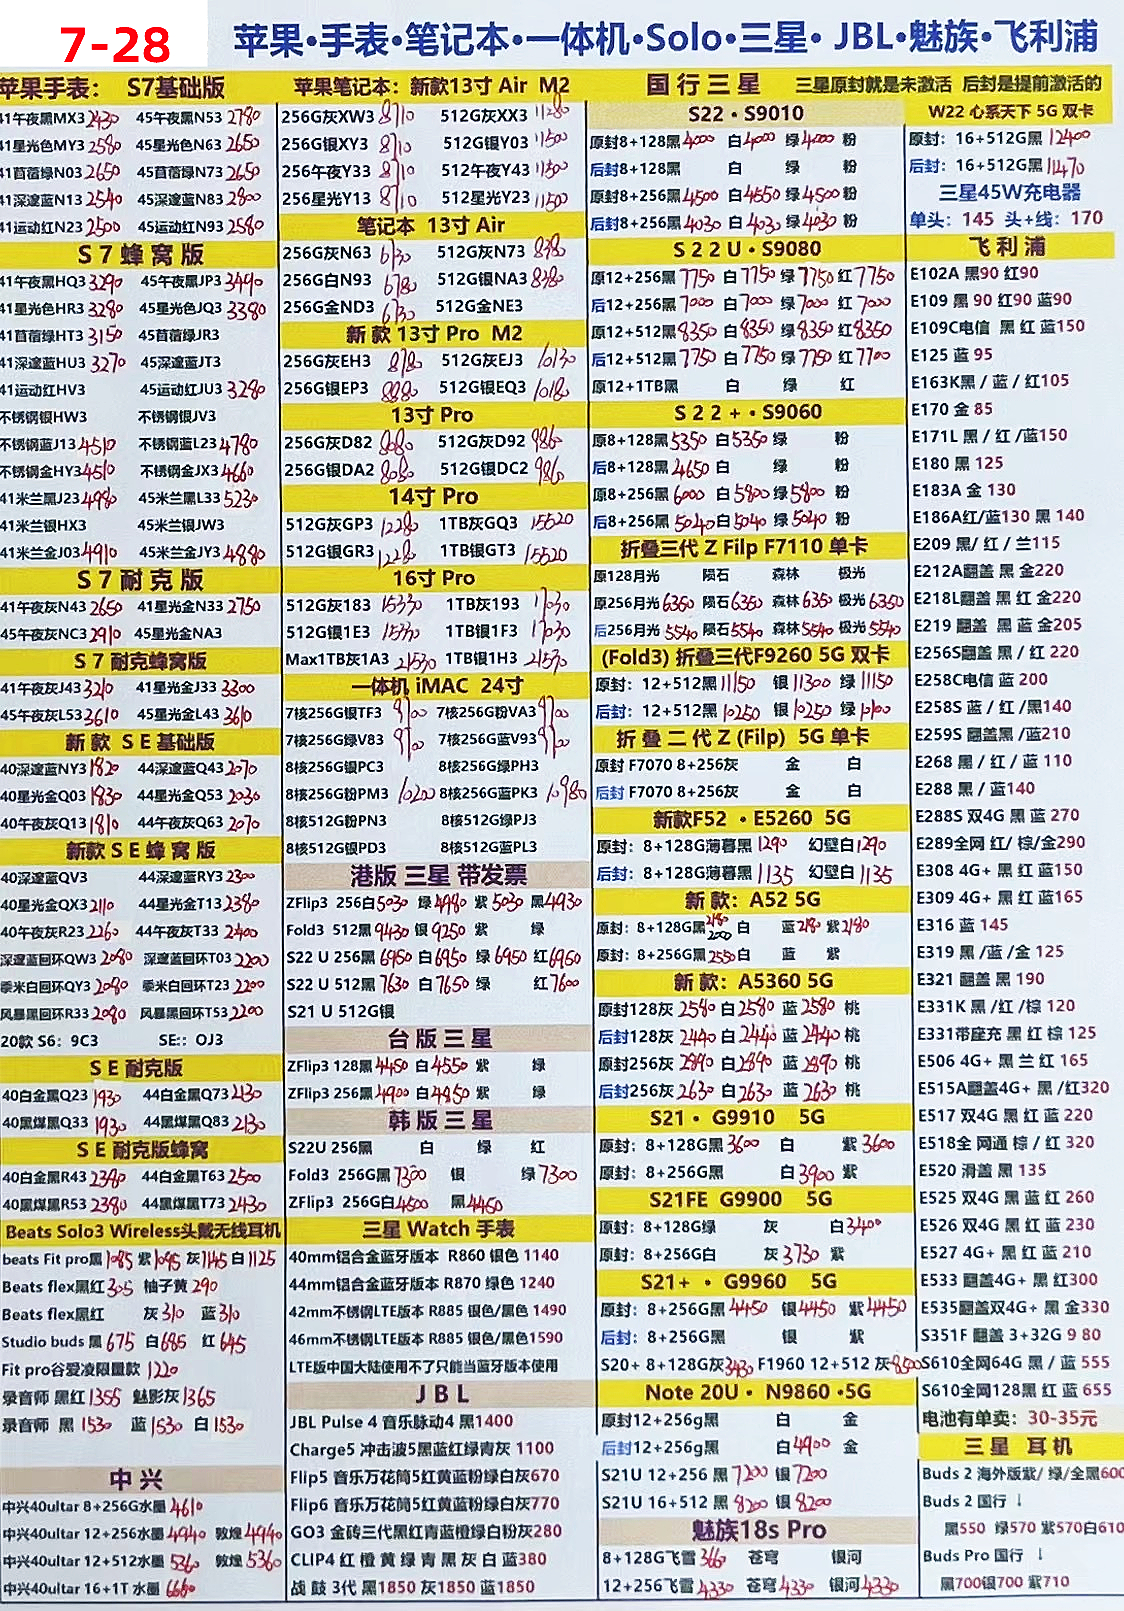 7-28
苹果·手表·笔记本·一体机·Solo·三星· JBL·魅族·飞利浦
苹果手表： S7基础版
41午夜黑MX3 2430 45午夜黑N53 2780
41星光色MY3 2580 45星光色N63 2650
41苜蓿绿N03 2650 45苜蓿绿N73 2650
41深邃蓝N13 2540 45深邃蓝N83 2800
41运动红N23 2500 45运动红N93 2580
S 7 蜂 窝 版
41午夜黑HQ3 3290 45午夜黑JP3 3490
41星光色HR3 3280 45星光色JQ3 3380
41苜蓿绿HT3 3150 45苜蓿绿JR3
41深邃蓝HU3 3270 45深邃蓝JT3
41运动红HV3 45运动红JU3 3280
不锈钢银HW3 不锈钢银JV3
不锈钢蓝J13 4510 不锈钢蓝L23 4780
不锈钢金HY3 4510 不锈钢金JX3 4660
41米兰黑J23 4980 45米兰黑L33 5230
41米兰银HX3 45米兰银JW3
41米兰金J03 4910 45米兰金JY3 4880
S 7 耐 克 版
41午夜灰N43 2650 41星光金N33 2750
45午夜灰NC3 2910 45星光金NA3
S 7 耐克蜂窝版
41午夜灰J43 3210 41星光金J33 3300
45午夜灰L53 3610 45星光金L43 3610
新 款 S E 基础版
40深邃蓝NY3 1820 44深邃蓝Q43 2070
40星光金Q03 1830 44星光金Q53 2030
40午夜灰Q13 1810 44午夜灰Q63 2070
新款 S E 蜂 窝 版
40深邃蓝QV3 44深邃蓝RY3 2300
40星光金QX3 2110 44星光金T13 2380
40午夜灰R23 2260 44午夜灰T33 2400
深邃蓝回环QW3 2080 深邃蓝回环T03 2200
黍米白回环QY3 2080 黍米白回环T23 2200
风暴黑回环R33 2080 风暴黑回环T53 2200
20款 S6：9C3 SE:：OJ3
S E 耐克版
40白金黑Q23 1930 44白金黑Q73 2130
40黑煤黑Q33 1930 44黑煤黑Q83 2130
S E 耐克版蜂窝
40白金黑R43 2340 44白金黑T63 2500
40黑煤黑R53 2380 44黑煤黑T73 2430
Beats Solo3 Wireless头戴无线耳机
beats Fit pro黑 1085 紫 1095 灰 1145 白 1125
Beats flex黑红 305 柚子黄 290
Beats flex黑红 灰 310 蓝 310
Studio buds 黑 675 白 685 红 645
Fit pro谷爱凌限量款 1220
录音师 黑红 1355 魅影灰 1365
录音师 黑 1530 蓝 1530 白 1530
中 兴
中兴40ultar 8+256G水墨 4610
中兴40ultar 12+256水墨 4940 敦煌 4940
中兴40ultar 12+512水墨 5360 敦煌 5360
中兴40ultar 16+1T 水墨 6680
苹果笔记本：新款13寸 Air M2
256G灰XW3 8710 512G灰XX3 11280
256G银XY3 8710 512G银Y03 11500
256午夜Y33 8710 512午夜Y43 11500
256星光Y13 8710 512星光Y23 11500
笔记本 13寸 Air
256G灰N63 6730 512G灰N73 8380
256G白N93 6780 512G银NA3 8380
256G金ND3 6730 512G金NE3
新 款 13寸 Pro M2
256G灰EH3 8780 512G灰EJ3 10130
256G银EP3 8880 512G银EQ3 10180
13寸 Pro
256G灰D82 8080 512G灰D92 9860
256G银DA2 8080 512G银DC2 9860
14寸 Pro
512G灰GP3 12280 1TB灰GQ3 15520
512G银GR3 12280 1TB银GT3 15520
16寸 Pro
512G灰183 15330 1TB灰193 17030
512G银1E3 15330 1TB银1F3 17030
Max1TB灰1A3 21530 1TB银1H3 21530
一体机 iMAC 24寸
7核256G银TF3 9700 7核256G粉VA3 9700
7核256G绿V83 9700 7核256G蓝V93 9700
8核256G银PC3 8核256G绿PH3
8核256G粉PM3 10200 8核256G蓝PK3 10980
8核512G粉PN3 8核512G绿PJ3
8核512G银PD3 8核512G蓝PL3
港版 三星 带发票
ZFlip3 256白 5030 绿 4980 紫 5030 黑 4930
Fold3 512黑 9430 银 9250 紫 绿
S22 U 256黑 6950 白 6950 绿 6950 红 6950
S22 U 512黑 7630 白 7650 绿 红 7600
S21 U 512G银
台 版 三 星
ZFlip3 128黑 4450 白 4550 紫 绿
ZFlip3 256黑 4900 白 4850 紫 绿
韩 版 三 星
S22U 256黑 白 绿 红
Fold3 256G黑 7300 银 绿 7300
ZFlip3 256G白 4500 黑 4460
三星 Watch 手表
40mm铝合金蓝牙版本 R860 银色 1140
44mm铝合金蓝牙版本 R870 绿色 1240
42mm不锈钢LTE版本 R885 银色/黑色 1490
46mm不锈钢LTE版本 R885 银色/黑色1590
LTE版中国大陆使用不了只能当蓝牙版本使用
J B L
JBL Pulse 4 音乐脉动4 黑1400
Charge5 冲击波5黑蓝红绿青灰 1100
Flip5 音乐万花筒5红黄蓝粉绿白灰670
Flip6 音乐万花筒5红黄蓝粉绿白灰770
GO3 金砖三代黑红青蓝橙绿白粉灰280
CLIP4 红 橙 黄 绿 青 黑 灰 白 蓝380
战 鼓 3代 黑1850 灰1850 蓝1850
国 行 三 星 三星原封就是未激活 后封是提前激活的
S22 · S9010
原封8+128黑 4000 白 4000 绿 4000 粉
后封8+128黑 白 绿 粉
原封8+256黑 4500 白 4550 绿 4500 粉
后封8+256黑 4030 白 4030 绿 4030 粉
S 2 2 U · S9080
原12+256黑 7750 白 7750 绿 7750 红 7750
后12+256黑 7000 白 7000 绿 7000 红 7000
原12+512黑 8350 白 8350 绿 8350 红 8350
后12+512黑 7750 白 7750 绿 7750 红 7700
原12+1TB黑 白 绿 红
S 2 2 + · S9060
原8+128黑 5350 白 5350 绿 粉
后8+128黑 4650 白 绿 粉
原8+256黑 6000 白 5800 绿 5800 粉
后8+256黑 5040 白 5040 绿 5040 粉
折叠三代 Z Filp F7110 单卡
原128月光 陨石 森林 极光
原256月光 6350 陨石 6350 森林 6350 极光 6350
后256月光 5540 陨石 5540 森林 5540 极光 5540
(Fold3) 折叠三代F9260 5G 双卡
原封：12+512黑 11150 银 11300 绿 11150
后封：12+512黑 10250 银 10250 绿 10100
折 叠 二 代 Z (Filp) 5G 单卡
原封 F7070 8+256灰 金 白
后封 F7070 8+256灰 金 白
新款F52 · E5260 5G
原封：8+128G薄暮黑 1290 幻壁白 1290
后封：8+128G薄暮黑 1135 幻壁白 1135
新 款：A52 5G
原封：8+128G黑 2180 2000 白 蓝 2180 紫 2180
原封：8+256G黑 2550 白 蓝 紫
新 款：A5360 5G
原封128灰 2540 白 2580 蓝 2580 桃
后封128灰 2440 白 2440 蓝 2440 桃
原封256灰 2890 白 2890 蓝 2890 桃
后封256灰 2630 白 2630 蓝 2630 桃
S21 · G9910 5G
原封：8+128G黑 3600 白 紫 3600
原封：8+256G黑 白 3900 紫
S21FE G9900 5G
原封：8+128G绿 灰 白 3400
原封：8+256G白 灰 3730 紫
S21+ · G9960 5G
原封：8+256G黑 4450 银 4450 紫 4450
后封：8+256G黑 银 紫
S20+ 8+128G灰 3430 F1960 12+512 灰 8500
Note 20U · N9860 ·5G
原封12+256g黑 白 金
后封12+256g黑 白 4900 金
S21U 12+256 黑 7200 银 7200
S21U 16+512 黑 8200 银 8200
魅族18s Pro
8+128G飞雪 3660 苍穹 银河
12+256飞雪 4330 苍穹 4330 银河 4330
W22 心系天下 5G 双卡
原封：16+512G黑 12400
后封：16+512G黑 11470
三星45W充电器
单头：145 头+线：170
飞 利 浦
E102A 黑90 红90
E109 黑 90 红90 蓝90
E109C电信 黑 红 蓝150
E125 蓝 95
E163K黑 / 蓝 / 红105
E170 金 85
E171L 黑 / 红 /蓝150
E180 黑 125
E183A 金 130
E186A红/蓝130 黑 140
E209 黑/ 红 / 兰115
E212A翻盖 黑 金220
E218L翻盖 黑 红 金220
E219 翻盖 黑 蓝 金205
E256S翻盖 黑 / 红 220
E258C电信 蓝 200
E258S 蓝 / 红 /黑140
E259S 翻盖黑 /蓝210
E268 黑 / 红 / 蓝 110
E288 黑 / 蓝140
E288S 双4G 黑 蓝 270
E289全网 红/ 棕/金290
E308 4G+ 黑 红 蓝150
E309 4G+ 黑 红 蓝165
E316 蓝 145
E319 黑 /蓝 /金 125
E321 翻盖 黑 190
E331K 黑 /红 /棕 120
E331带座充 黑 红 棕 125
E506 4G+ 黑 兰 红 165
E515A翻盖4G+ 黑 /红320
E517 双4G 黑 红 蓝 220
E518全 网通 棕 / 红 320
E520 滑盖 黑 135
E525 双4G 黑 蓝 红 260
E526 双4G 黑 红 蓝 230
E527 4G+ 黑 红 蓝 210
E533 翻盖4G+ 黑 红300
E535翻盖双4G+ 黑 金330
S351F 翻盖 3+32G 9 80
S610全网64G 黑 / 蓝 555
S610全网128黑 红 蓝 655
电池有单卖：30-35元
三 星 耳 机
Buds 2 海外版紫/ 绿/全黑600
Buds 2 国行 ↓
黑550 绿570 紫570白610
Buds Pro 国行 ↓
黑700银700 紫710